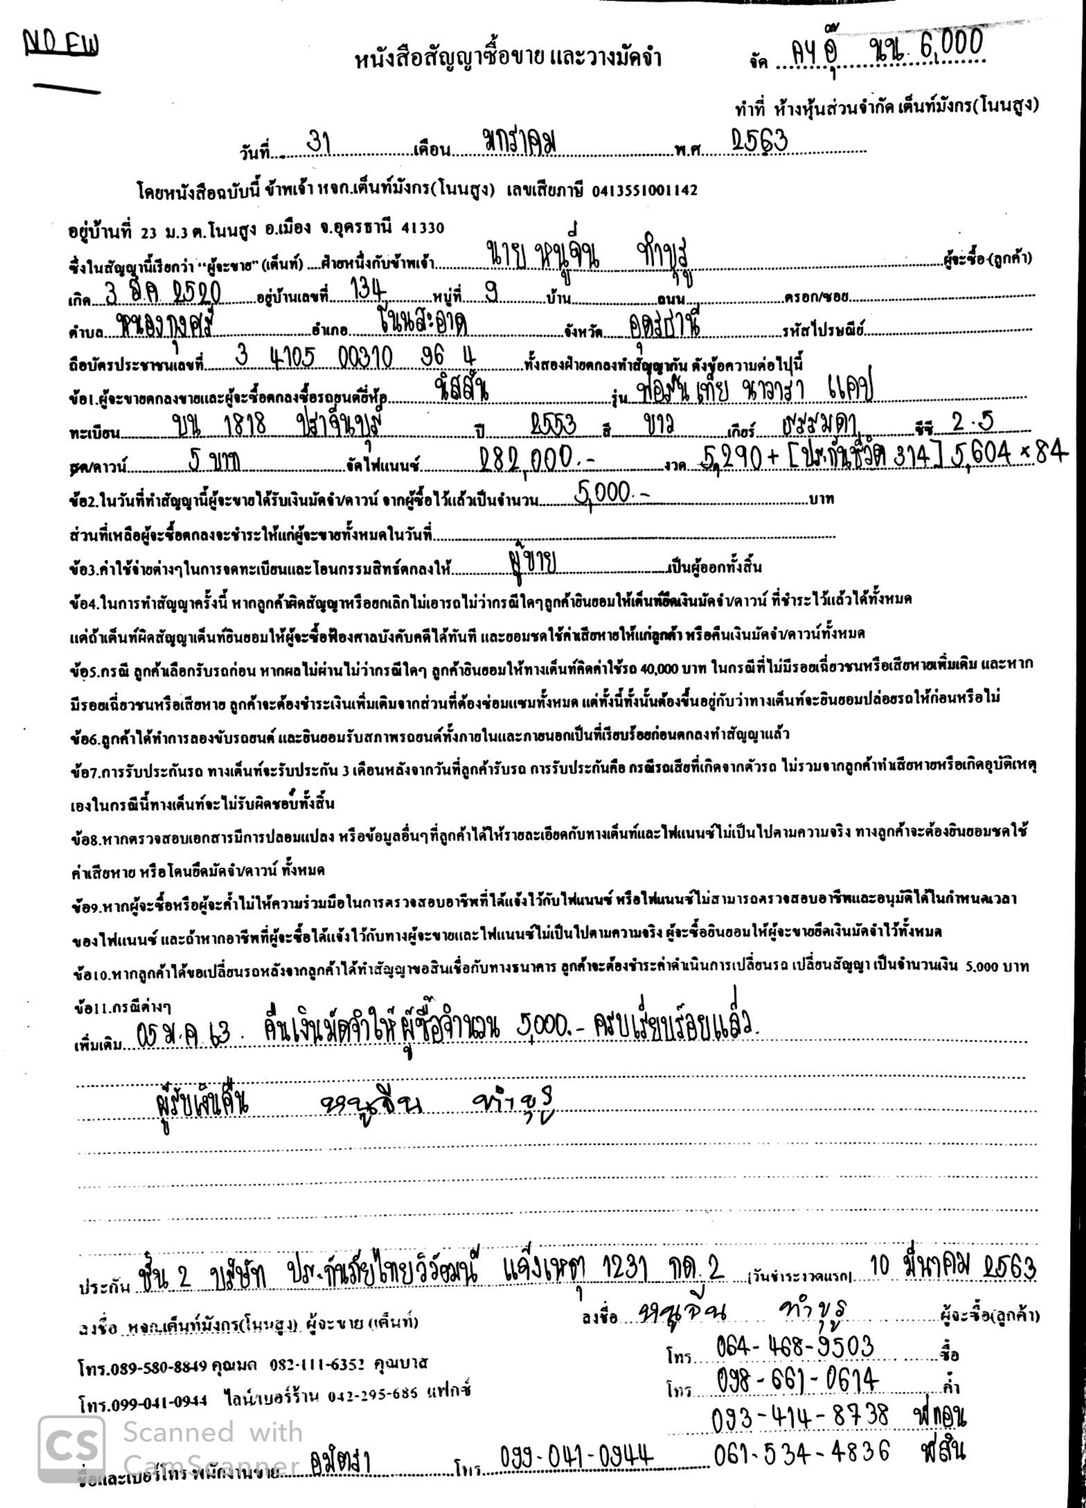 NO EW
หนังสือสัญญาซื้อขาย และวางมัดจำ
จัด คุ อุ๊ นน. 6,000
ทำที่ ห้างหุ้นส่วนจำกัด เต็นท์มังกร(โนนสูง)
วันที่ 31 เดือน มกราคม พ.ศ 2563
โดยหนังสือฉบับนี้ ข้าพเจ้า หจก.เต็นท์มังกร(โนนสูง) เลขเสียภาษี 0413551001142
อยู่บ้านที่ 23 ม.3 ต.โนนสูง อ.เมือง จ.อุดรธานี 41330
ซึ่งในสัญญานี้เรียกว่า "ผู้จะขาย" (เต็นท์) ฝ่ายหนึ่งกับข้าพเจ้า นาย หนูจีน ทำบุรู ผู้จะซื้อ (ลูกค้า)
เกิด 3 มี.ค 2520 อยู่บ้านเลขที่ 134 หมู่ที่ 9 บ้าน ถนน ตรอก/ซอย
ตำบล หนองกุงศรี อำเภอ โนนสะอาด จังหวัด อุดรธานี รหัสไปรษณีย์
ถือบัตรประชาชนเลขที่ 3 4105 00310 96 4 ทั้งสองฝ่ายตกลงทำสัญญากัน ดังข้อความต่อไปนี้
ข้อ1.ผู้จะขายตกลงขายและผู้จะซื้อตกลงซื้อรถยนต์ยี่ห้อ นิสสัน รุ่น ฟรอนเทีย นาวารา แคป
ทะเบียน บน 1818 ปราจีนบุรี ปี 2553 สี ขาว เกียร์ ธรรมดา ซีซี 2.5
สด/ดาวน์ 5 บาท จัดไฟแนนซ์ 282,000.- งวด 5,290 + [ประกันชีวิต 314] 5,604 × 84
ข้อ2.ในวันที่ทำสัญญานี้ผู้จะขายได้รับเงินมัดจำ/ดาวน์ จากผู้ซื้อไว้แล้วเป็นจำนวน 5,000.- บาท
ส่วนที่เหลือผู้จะซื้อตกลงจะชำระให้แก่ผู้จะขายทั้งหมดในวันที่
ข้อ3.ค่าใช้จ่ายต่างๆในการจดทะเบียนและโอนกรรมสิทธ์ตกลงให้ ผู้ขาย เป็นผู้ออกทั้งสิ้น
ข้อ4.ในการทำสัญญาครั้งนี้ หากลูกค้าผิดสัญญาหรือยกเลิกไม่เอารถไม่ว่ากรณีใดๆลูกค้ายินยอมให้เต็นท์ยึดเงินมัดจำ/ดาวน์ ที่ชำระไว้แล้วได้ทั้งหมด
แต่ถ้าเต็นท์ผิดสัญญาเต็นท์ยินยอมให้ผู้จะซื้อฟ้องศาลบังคับคดีได้ทันที และยอมชดใช้ค่าเสียหายให้แก่ลูกค้า หรือคืนเงินมัดจำ/ดาวน์ทั้งหมด
ข้อ5.กรณี ลูกค้าเลือกรับรถก่อน หากผลไม่ผ่านไม่ว่ากรณีใดๆ ลูกค้ายินยอมให้ทางเต็นท์คิดค่าใช้รถ 40,000 บาท ในกรณีที่ไม่มีรอยเฉี่ยวชนหรือเสียหายเพิ่มเติม และหาก
มีรอยเฉี่ยวชนหรือเสียหาย ลูกค้าจะต้องชำระเงินเพิ่มเติมจากส่วนที่ต้องซ่อมแซมทั้งหมด แต่ทั้งนี้ทั้งนั้นต้องขึ้นอยู่กับว่าทางเต็นท์จะยินยอมปล่อยรถให้ก่อนหรือไม่
ข้อ6.ลูกค้าได้ทำการลองขับรถยนต์ และยินยอมรับสภาพรถยนต์ทั้งภายในและภายนอกเป็นที่เรียบร้อยก่อนตกลงทำสัญญาแล้ว
ข้อ7.การรับประกันรถ ทางเต็นท์จะรับประกัน 3 เดือนหลังจากวันที่ลูกค้ารับรถ การรับประกันคือ กรณีรถเสียที่เกิดจากตัวรถ ไม่รวมจากลูกค้าทำเสียหายหรือเกิดอุบัติเหตุ
เองในกรณีนี้ทางเต็นท์จะไม่รับผิดชอบทั้งสิ้น
ข้อ8.หากตรวจสอบเอกสารมีการปลอมแปลง หรือข้อมูลอื่นๆที่ลูกค้าได้ให้รายละเอียดกับทางเต็นท์และไฟแนนซ์ไม่เป็นไปตามความจริง ทางลูกค้าจะต้องยินยอมชดใช้
ค่าเสียหาย หรือโดนยึดมัดจำ/ดาวน์ ทั้งหมด
ข้อ9.หากผู้จะซื้อหรือผู้จะค้ำไม่ให้ความร่วมมือในการตรวจสอบอาชีพที่ได้แจ้งไว้กับไฟแนนซ์ หรือไฟแนนซ์ไม่สามารถตรวจสอบอาชีพและอนุมัติได้ในกำหนดเวลา
ของไฟแนนซ์ และถ้าหากอาชีพที่ผู้จะซื้อได้แจ้งไว้กับทางผู้จะขายและไฟแนนซ์ไม่เป็นไปตามความจริง ผู้จะซื้อยินยอมให้ผู้จะขายยึดเงินมัดจำไว้ทั้งหมด
ข้อ10.หากลูกค้าได้ขอเปลี่ยนรถหลังจากลูกค้าได้ทำสัญญาขอสินเชื่อกับทางธนาคาร ลูกค้าจะต้องชำระค่าดำเนินการเปลี่ยนรถ เปลี่ยนสัญญา เป็นจำนวนเงิน 5,000 บาท
ข้อ11.กรณีต่างๆ
เพิ่มเติม 05 ม.ค 63. คืนเงินมัดจำให้ผู้ซื้อจำนวน 5,000.- ครบเรียบร้อยแล้ว.
ผู้รับเงินคืน หนูจีน ทำบุรู
ประกัน ชั้น 2 บริษัท ประกันภัยไทยวิวัฒน์ แจ้งเหตุ 1231 กด.2 (วันชำระงวดแรก) 10 มีนาคม 2563
ลงชื่อ หจก.เต็นท์มังกร(โนนสูง) ผู้จะขาย (เต็นท์) ลงชื่อ หนูจีน ทำบุรู ผู้จะซื้อ(ลูกค้า)
โทร.089-580-8849 คุณมด 082-111-6352 คุณบาส โทร 064-468-9503 ซื้อ
โทร.099-041-0944 ไลน์/เบอร์ร้าน 042-295-686 แฟกซ์ โทร 098-661-0614 ค้ำ
093-414-8738 พี่ทอน
Scanned with
CS CamScanner
ชื่อและเบอร์โทร พนักงานขาย อมิตรา โทร 099-041-0944 061-534-4836 พี่สิน